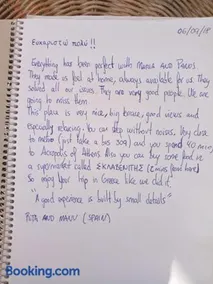 06/09/18
Ευχαριστώ πολύ!!
Everything has been perfect with Maria and
They made us feel at home, always available for us. They
solved all our issues. They are very good people. We are
going to miss them
This place is very nice, big house, good views and
especially relaxing. You can sleep without noises. Very close
to metro (just take a bus 309) and you spend 40 minutes
to Acropolis of Athens. Also you can buy some food in
a supermarket called ΣΚΛΑΒΕΝΙΤΗΣ (2 mins from here)
So enjoy your trip in Greece like we did it.
"A good experience is built by small details"
AND MANU (SPAIN)
Booking.com